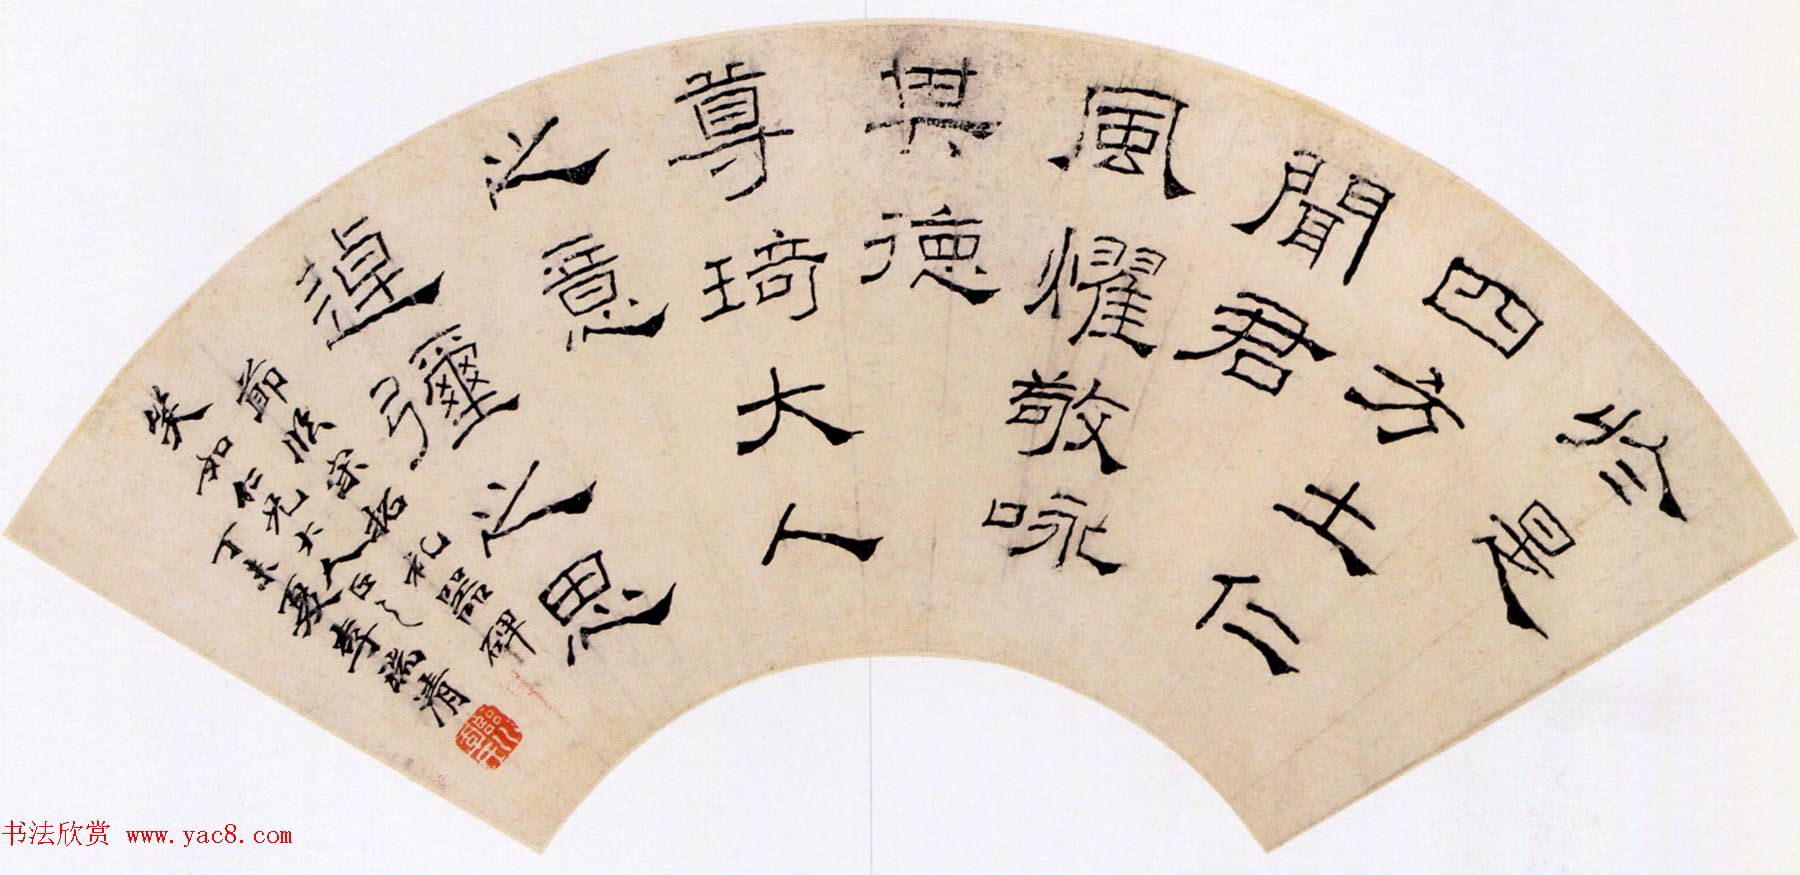 於是
四方土仁
聞君
風燿敬咏
其德
尊琦大人
之意
逴彌之思
節臨宋拓礼器碑
仁兄大人正之
丁未夏李瑞清
书法欣赏 www.yac8.com